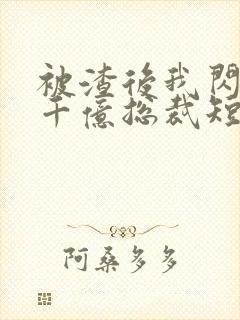 被渣後我閃
千億總裁短
阿桑多多